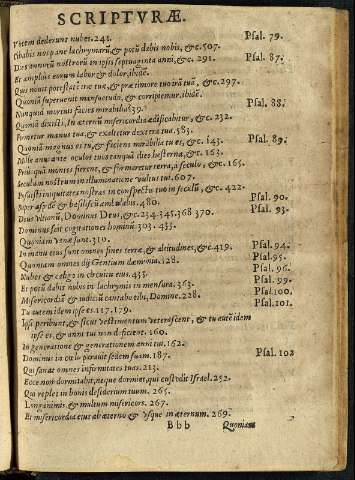 SCRIPTVRÆ.
Vocem dederunt nubes. 241. Psal. 79.
Cibabis nos pane lachrymarũ, & potũ dabis nobis, &c. 507.
Dies annorũ nostrorũ in ipsis septuaginta anni, &c. 291. Psal. 87.
Et amplius eorum labor & dolor, ibidẽ.
Quis nouit potestatẽ iræ tuæ, & præ timore tuo irã tuã, &c. 297.
Quoniã superuenit mansuetudo, & corripiemur. ibidẽ.
Nunquid mortuis facies mirabilia? 539. Psal. 88.
Quoniã dixisti, In æternũ misericordia ædificabitur, &c. 232.
Firmetur manus tua, & exaltetur dextera tua. 583.
Quoniã magnus es tu, & faciens mirabilia tu es, &c. 143. Psal. 89.
Mille anni ante oculos tuos tanquã dies hesterna, &c. 163.
Priusquã montes fierent, & formaretur terra, a seculo, &c. 165.
Seculum nostrum in illuminatione vultus tui. 607.
Posuisti iniquitates nostras in conspectu tuo in seculũ, &c. 422.
Super aspidẽ & basiliscũ ambulabis. 480. Psal. 90.
Deus vltionũ, Dominus Deus, &c. 234. 345. 368. 370. Psal. 93.
Dominus scit cogitationes hominũ. 303. 433.
Quoniam vanæ sunt. 310.
In manu eius sunt omnes fines terræ, & altitudines, &c. 419. Psal. 94.
Quoniam omnes dij Gentium dæmonia. 128. Psal. 95.
Nubes & caligo in circuitu eius. 433. Psal. 96.
Et potũ dabis nobis in lachrymis in mensura. 363. Psal. 99.
Misericordiã & iudiciũ cantabo tibi, Domine. 228. Psal. 100.
Tu autem idem ipse es. 117. 179. Psal. 101.
Ipsi peribunt, & sicut vestimentum veterascent, & tu autẽ idem
ipse es, & anni tui non deficient. 160.
In generatione & generationem anni tui. 162.
Dominus in cœlo parauit sedem suam. 187. Psal. 102
Qui sanat omnes infirmitates tuas. 213.
Ecce non dormitabit, neque dormiet, qui custodit Israel. 252.
Qui replet in bonis desiderium tuum. 265.
Longanimis, & multum misericors. 267.
Et misericordia eius ab æterno & vsque in æternum. 269.
Bbb Quoniam